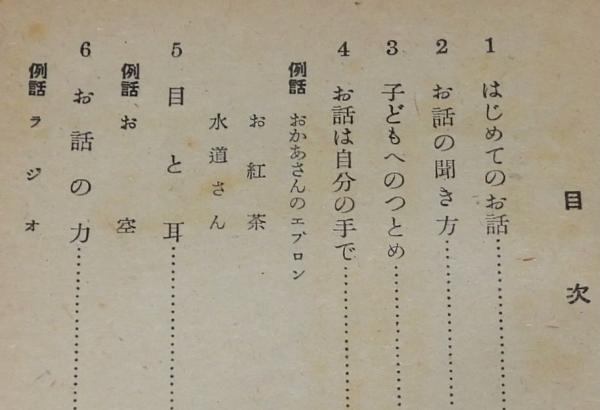 目次
1 はじめてのお話
2 お話の聞き方
3 子どもへのつとめ
4 お話は自分の手で
例話 おかあさんのエプロン
お紅茶
水道さん
5 目と耳
例話 お空
6 お話の力
例話 ラジオ